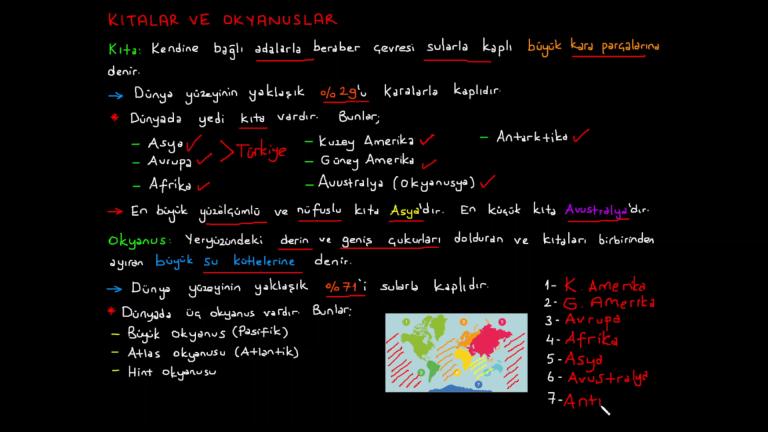 KITALAR VE OKYANUSLAR
Kıta: Kendine bağlı adalarla beraber çevresi sularla kaplı büyük kara parçalarına
denir.
→ Dünya yüzeyinin yaklaşık %29'u karalarla kaplıdır.
* Dünyada yedi kıta vardır. Bunlar;
- Asya
- Avrupa
- Afrika
> Türkiye
- Kuzey Amerika
- Güney Amerika
- Avustralya (Okyanusya)
- Antarktika
→ En büyük yüzölçümlü ve nüfuslu kıta Asya'dır. En küçük kıta Avustralya'dır.
Okyanus: Yeryüzündeki derin ve geniş çukurları dolduran ve kıtaları birbirinden
ayıran büyük su kütlelerine denir.
→ Dünya yüzeyinin yaklaşık %71'i sularla kaplıdır.
* Dünyada üç okyanus vardır. Bunlar;
- Büyük okyanus (Pasifik)
- Atlas okyanusu (Atlantik)
- Hint okyanusu
1- K. Amerika
2- G. Amerika
3- Avrupa
4- Afrika
5- Asya
6- Avustralya
7- Antı